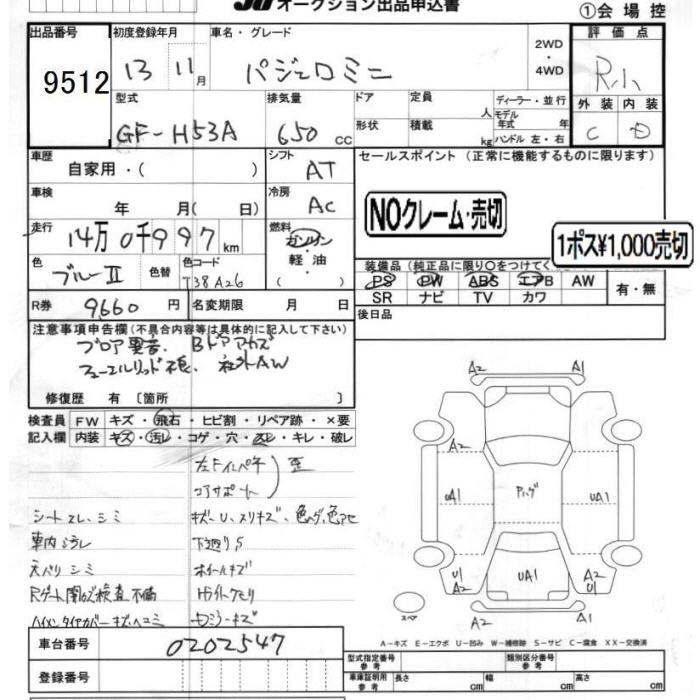 オークション出品申込書
①会場控
出品番号
9512
初度登録年月
13 11月
車名・グレード
パジェロミニ
2WD
・
4WD
評価点
R
外装 内装
C D
型式
GF-H53A
排気量
650 cc
ドア
定員
人
形状
積載
kg
ディーラー・並行
モデル年式 年
ハンドル 左・右
車歴
自家用・( )
シフト
AT
セールスポイント (正常に機能するものに限ります)
車検
年 月( 日)
冷房
AC
NOクレーム・売切
1ポス¥1,000売切
走行
14万0千997km
燃料
ガソリン
・
軽油
・
( )
色
ブルーII
色替
色コード
T38A26
装備品 (純正品に限り○をつけてく
PS PW ABS エアB AW
SR ナビ TV カワ
有・無
R券 9660円
名変期限 月 日
後日品
注意事項申告欄(不具合内容等は具体的に記入して下さい)
ブロア異音. Bドアアカズ
フューエルリッド不良. 社外AW
修復歴 有 〔箇所 〕
検査員記入欄
FW キズ・飛石・ヒビ割・リペア跡・×要
内装 キズ・汚レ・コゲ・穴・スレ・キレ・破レ
左Fインパネ
コアサポート
歪
シートスレ、シミ
キズ・U、スリキズ、色ハゲ、色アセ
車内ヨゴレ
下廻りS
天バリシミ
ホイールキズ
Rゲート開かズ検査不備
Hライトクモリ
ハイマンタイヤカバーキズ・ヘコミ
ドアミラーキズ
車台番号
0202547
登録番号
A2
A1
A2
A2
UA1
Pハゲ
UA1
U1
A2
UA1
A2
U1
スペア
A2
A1
A-キズ E-エクボ U-凹み W-補修跡 S-サビ C-腐食 XX-交換済
型式指定番号
参考
類別区分番号
参考
車庫証明用
参考
長さ cm
幅 cm
高さ cm